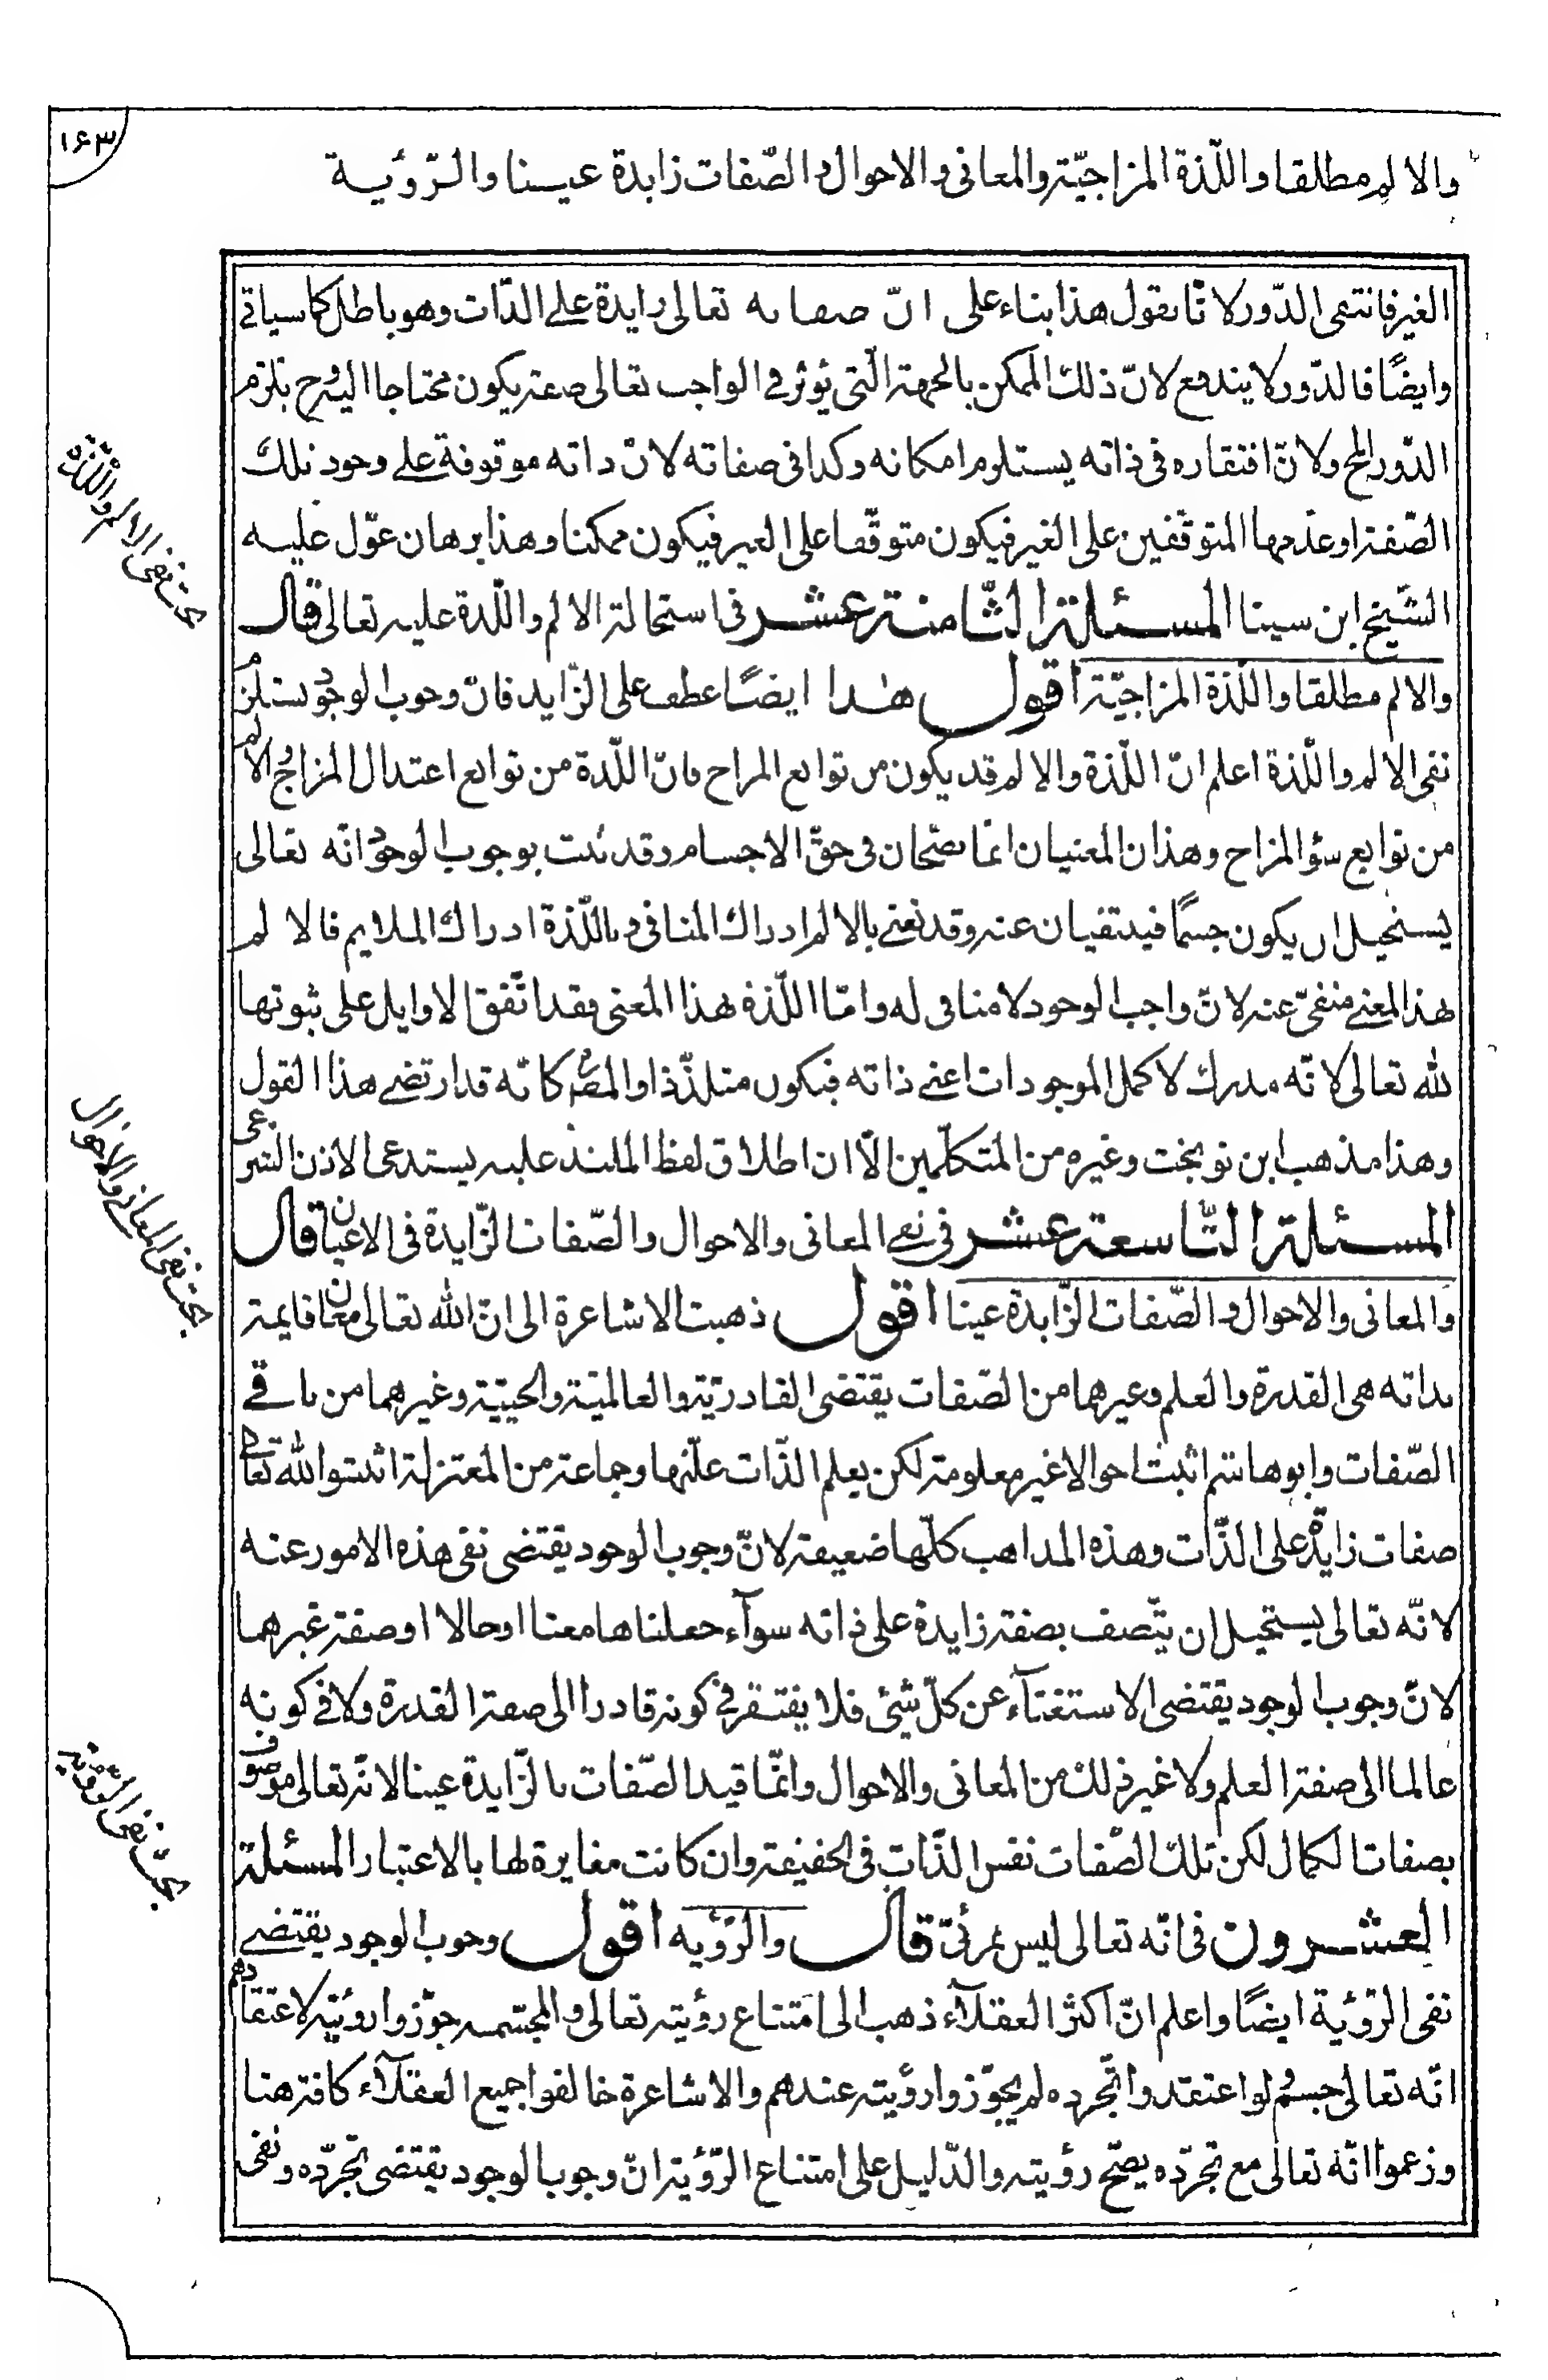 ١٦٣
والالم مطلقا واللّذة المزاجيّة والمعانى والاحوال والصّفات زايدة عينا والرّؤية
الغير فانتفى الدّور لا نّا نقول هذا بناء على انّ صفاته تعالى زايدة على الذّات وهو باطل كما سياتى
وايضًا فالدّور لا يندفع لانّ ذلك الممكن بالجهة الّتى يؤثر فى الواجب تعالى صفة يكون محتاجا اليه وح يلزم
الدّور المح ولانّ افتقاره فى ذاته يستلزم امكانه وكذا فى صفاته لانّ ذاته موقوفة على وجود تلك
الصّفة او عدمها المتوقّفين على الغير فيكون متوقّفا على الغير فيكون ممكنا وهذا برهان عوّل عليه
الشّيخ ابن سينا المسئلة الثّامنة عشر فى استحالة الالم واللّذة عليه تعالى قال
والالم مطلقا واللّذة المزاجيّة اقول هذا ايضًا عطف على الزّايد فانّ وجوب الوجود يستلزم
نفى الالم واللّذة اعلم انّ اللّذة والالم قد يكون من توابع المزاج فانّ اللّذة من توابع اعتدال المزاج والالم
من توابع سؤ المزاج وهذان المعنيان انّما يصحّان فى حقّ الاجسام وقد ثبت بوجوب الوجود انّه تعالى
يستحيل ان يكون جسمًا فينتفيان عنه وقد نعنى بالالم ادراك المنافى وباللّذة ادراك الملايم فالالم
بهذا المعنى منفىّ عنه لانّ واجب الوجود لا منافى له وامّا اللّذة بهذا المعنى فقد اتّفق الاوايل على ثبوتها
لله تعالى لانّه مدرك لاكمل الموجودات اعنى ذاته فيكون متلذّذا والمص كانّه قد ارتضى هذا القول
وهذا مذهب ابن نوبخت وغيره من المتكلّمين الّا ان اطلاق لفظ الملتذ عليه يستدعى الاذن الشرعى
المسئلة التّاسعة عشر فى نفى المعانى والاحوال والصّفات الزّايدة فى الاعيان قال
والمعانى والاحوال والصّفات الزّايدة عينا اقول ذهبت الاشاعرة الى انّ الله تعالى معان قايمة
بذاته هى القدرة والعلم وغيرهما من الصّفات يقتضى القادريّة والعالميّة والحييّة وغيرهما من باقى
الصّفات وابو هاشم اثبت احوالا غير معلومة لكن يعلم الذّات عليها وجماعة من المعتزلة اثبتوا لله تعالى
صفات زايدة على الذّات وهذه المذاهب كلّها ضعيفة لانّ وجوب الوجود يقتضى نفى هذه الامور عنه
لانّه تعالى يستحيل ان يتّصف بصفة زايدة على ذاته سوآء جعلناها معنا او حالا او صفة غيرهما
لانّ وجوب الوجود يقتضى الاستغنآء عن كلّ شيئ فلا يفتقر فى كونه قادرا الى صفة القدرة ولا فى كونه
عالما الى صفة العلم ولا غير ذلك من المعانى والاحوال وانّما قيد الصّفات بالزّايدة عينا لانّه تعالى موصوف
بصفات الكمال لكن تلك الصّفات نفس الذّات فى الحقيقة وان كانت مغايرة لها بالاعتبار المسئلة
العشرون فى انّه تعالى ليس بمرئىّ قال والرّؤيه اقول وجوب الوجود يقتضى
نفى الرّؤية ايضًا واعلم انّ اكثر العقلآء ذهب الى امتناع رؤيته تعالى والمجسّمه جوّزوا رؤيته لاعتقادهم
انّه تعالى جسم ولو اعتقدوا تجرده لم يجوّزوا رؤيته عندهم والاشاعرة خالفوا جميع العقلآء كافة هنا
وزعموا انّه تعالى مع تجرّده يصحّ رؤيته والدّليل على امتناع الرّؤية انّ وجوب الوجود يقتضى تجرّده ونفى
بحث نفى الالم واللّذة
بحث نفى المعانى والاحوال
بحث نفى الرّؤية